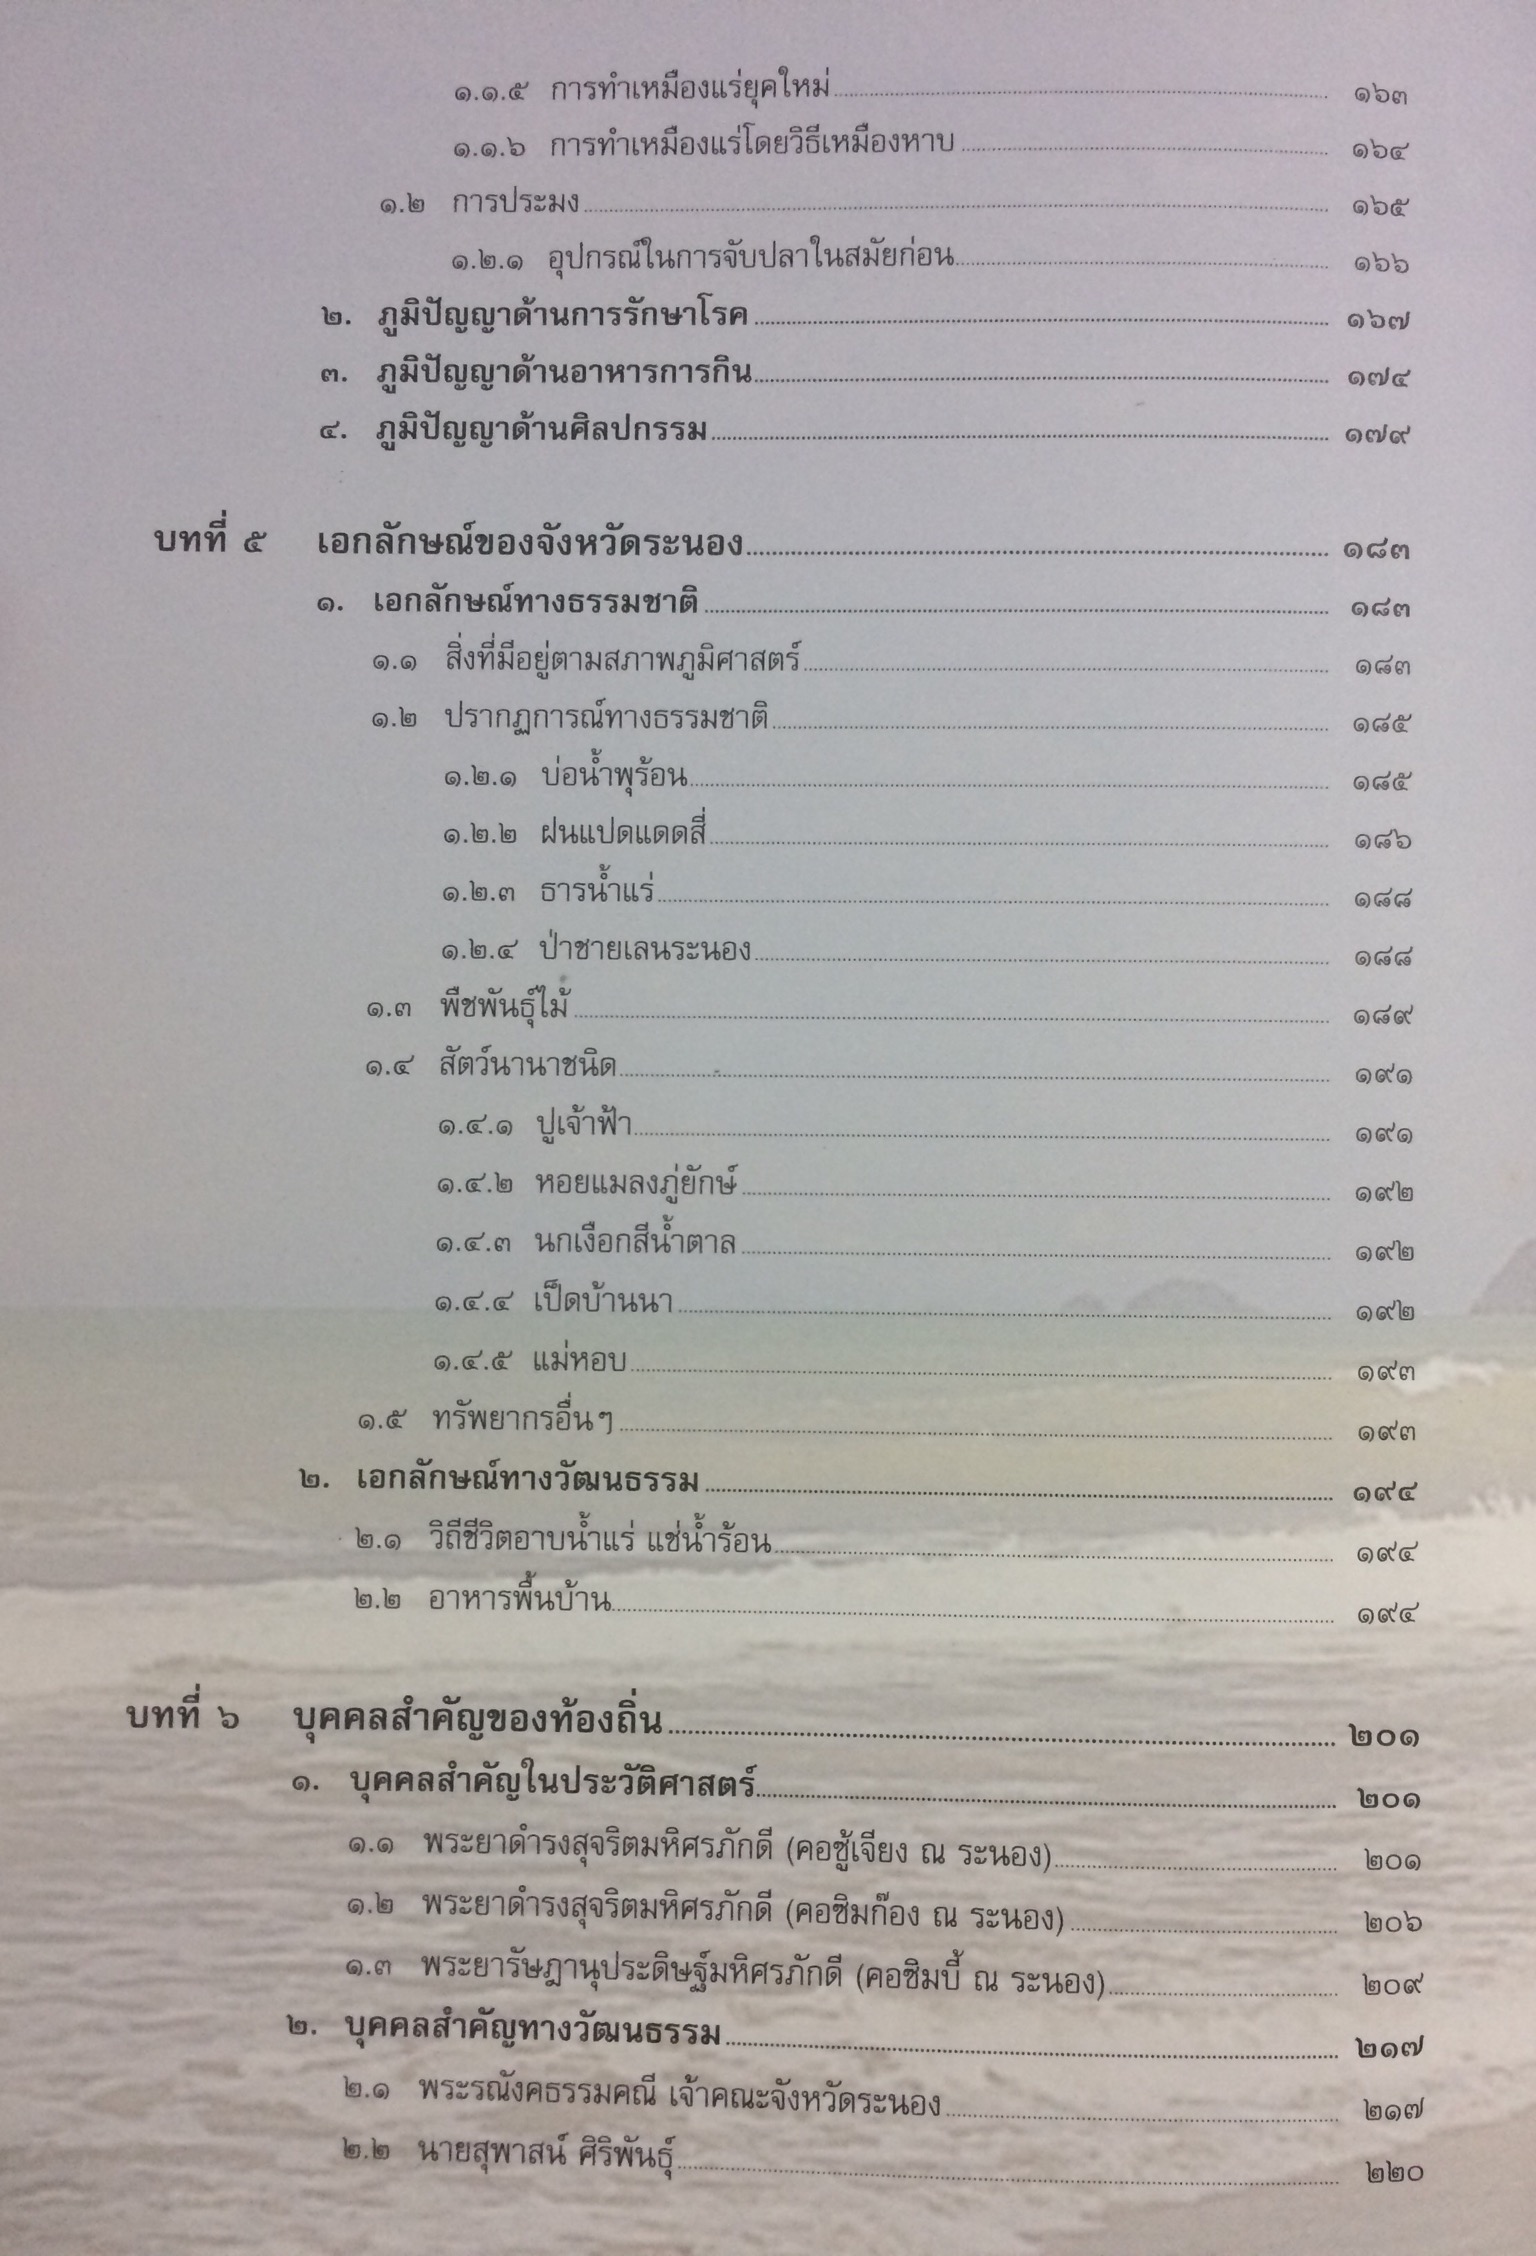 ๑.๑.๕ การทำเหมืองแร่ยุคใหม่ ๑๖๓
๑.๑.๖ การทำเหมืองแร่โดยวิธีเหมืองหาบ ๑๖๔
๑.๒ การประมง ๑๖๕
๑.๒.๑ อุปกรณ์ในการจับปลาในสมัยก่อน ๑๖๖
๒. ภูมิปัญญาด้านการรักษาโรค ๑๖๗
๓. ภูมิปัญญาด้านอาหารการกิน ๑๗๔
๔. ภูมิปัญญาด้านศิลปกรรม ๑๗๙
บทที่ ๕ เอกลักษณ์ของจังหวัดระนอง ๑๘๓
๑. เอกลักษณ์ทางธรรมชาติ ๑๘๓
๑.๑ สิ่งที่มีอยู่ตามสภาพภูมิศาสตร์ ๑๘๓
๑.๒ ปรากฏการณ์ทางธรรมชาติ ๑๘๕
๑.๒.๑ บ่อน้ำพุร้อน ๑๘๕
๑.๒.๒ ฝนแปดแดดสี่ ๑๘๖
๑.๒.๓ ธารน้ำแร่ ๑๘๘
๑.๒.๔ ป่าชายเลนระนอง ๑๘๘
๑.๓ พืชพันธุ์ไม้ ๑๘๙
๑.๔ สัตว์นานาชนิด ๑๙๑
๑.๔.๑ ปูเจ้าฟ้า ๑๙๑
๑.๔.๒ หอยแมลงภู่ยักษ์ ๑๙๒
๑.๔.๓ นกเงือกสีน้ำตาล ๑๙๒
๑.๔.๔ เป็ดบ้านนา ๑๙๒
๑.๔.๕ แม่หอบ ๑๙๓
๑.๕ ทรัพยากรอื่นๆ ๑๙๓
๒. เอกลักษณ์ทางวัฒนธรรม ๑๙๔
๒.๑ วิถีชีวิตอาบน้ำแร่ แช่น้ำร้อน ๑๙๔
๒.๒ อาหารพื้นบ้าน ๑๙๔
บทที่ ๖ บุคคลสำคัญของท้องถิ่น ๒๐๑
๑. บุคคลสำคัญในประวัติศาสตร์ ๒๐๑
๑.๑ พระยาดำรงสุจริตมหิศรภักดี (คอซู้เจียง ณ ระนอง) ๒๐๑
๑.๒ พระยาดำรงสุจริตมหิศรภักดี (คอซิมก๊อง ณ ระนอง) ๒๐๖
๑.๓ พระยารัษฎานุประดิษฐ์มหิศรภักดี (คอซิมบี้ ณ ระนอง) ๒๐๙
๒. บุคคลสำคัญทางวัฒนธรรม ๒๑๗
๒.๑ พระรณังคธรรมคณี เจ้าคณะจังหวัดระนอง ๒๑๗
๒.๒ นายสุพาสน์ ศิริพันธุ์ ๒๒๐